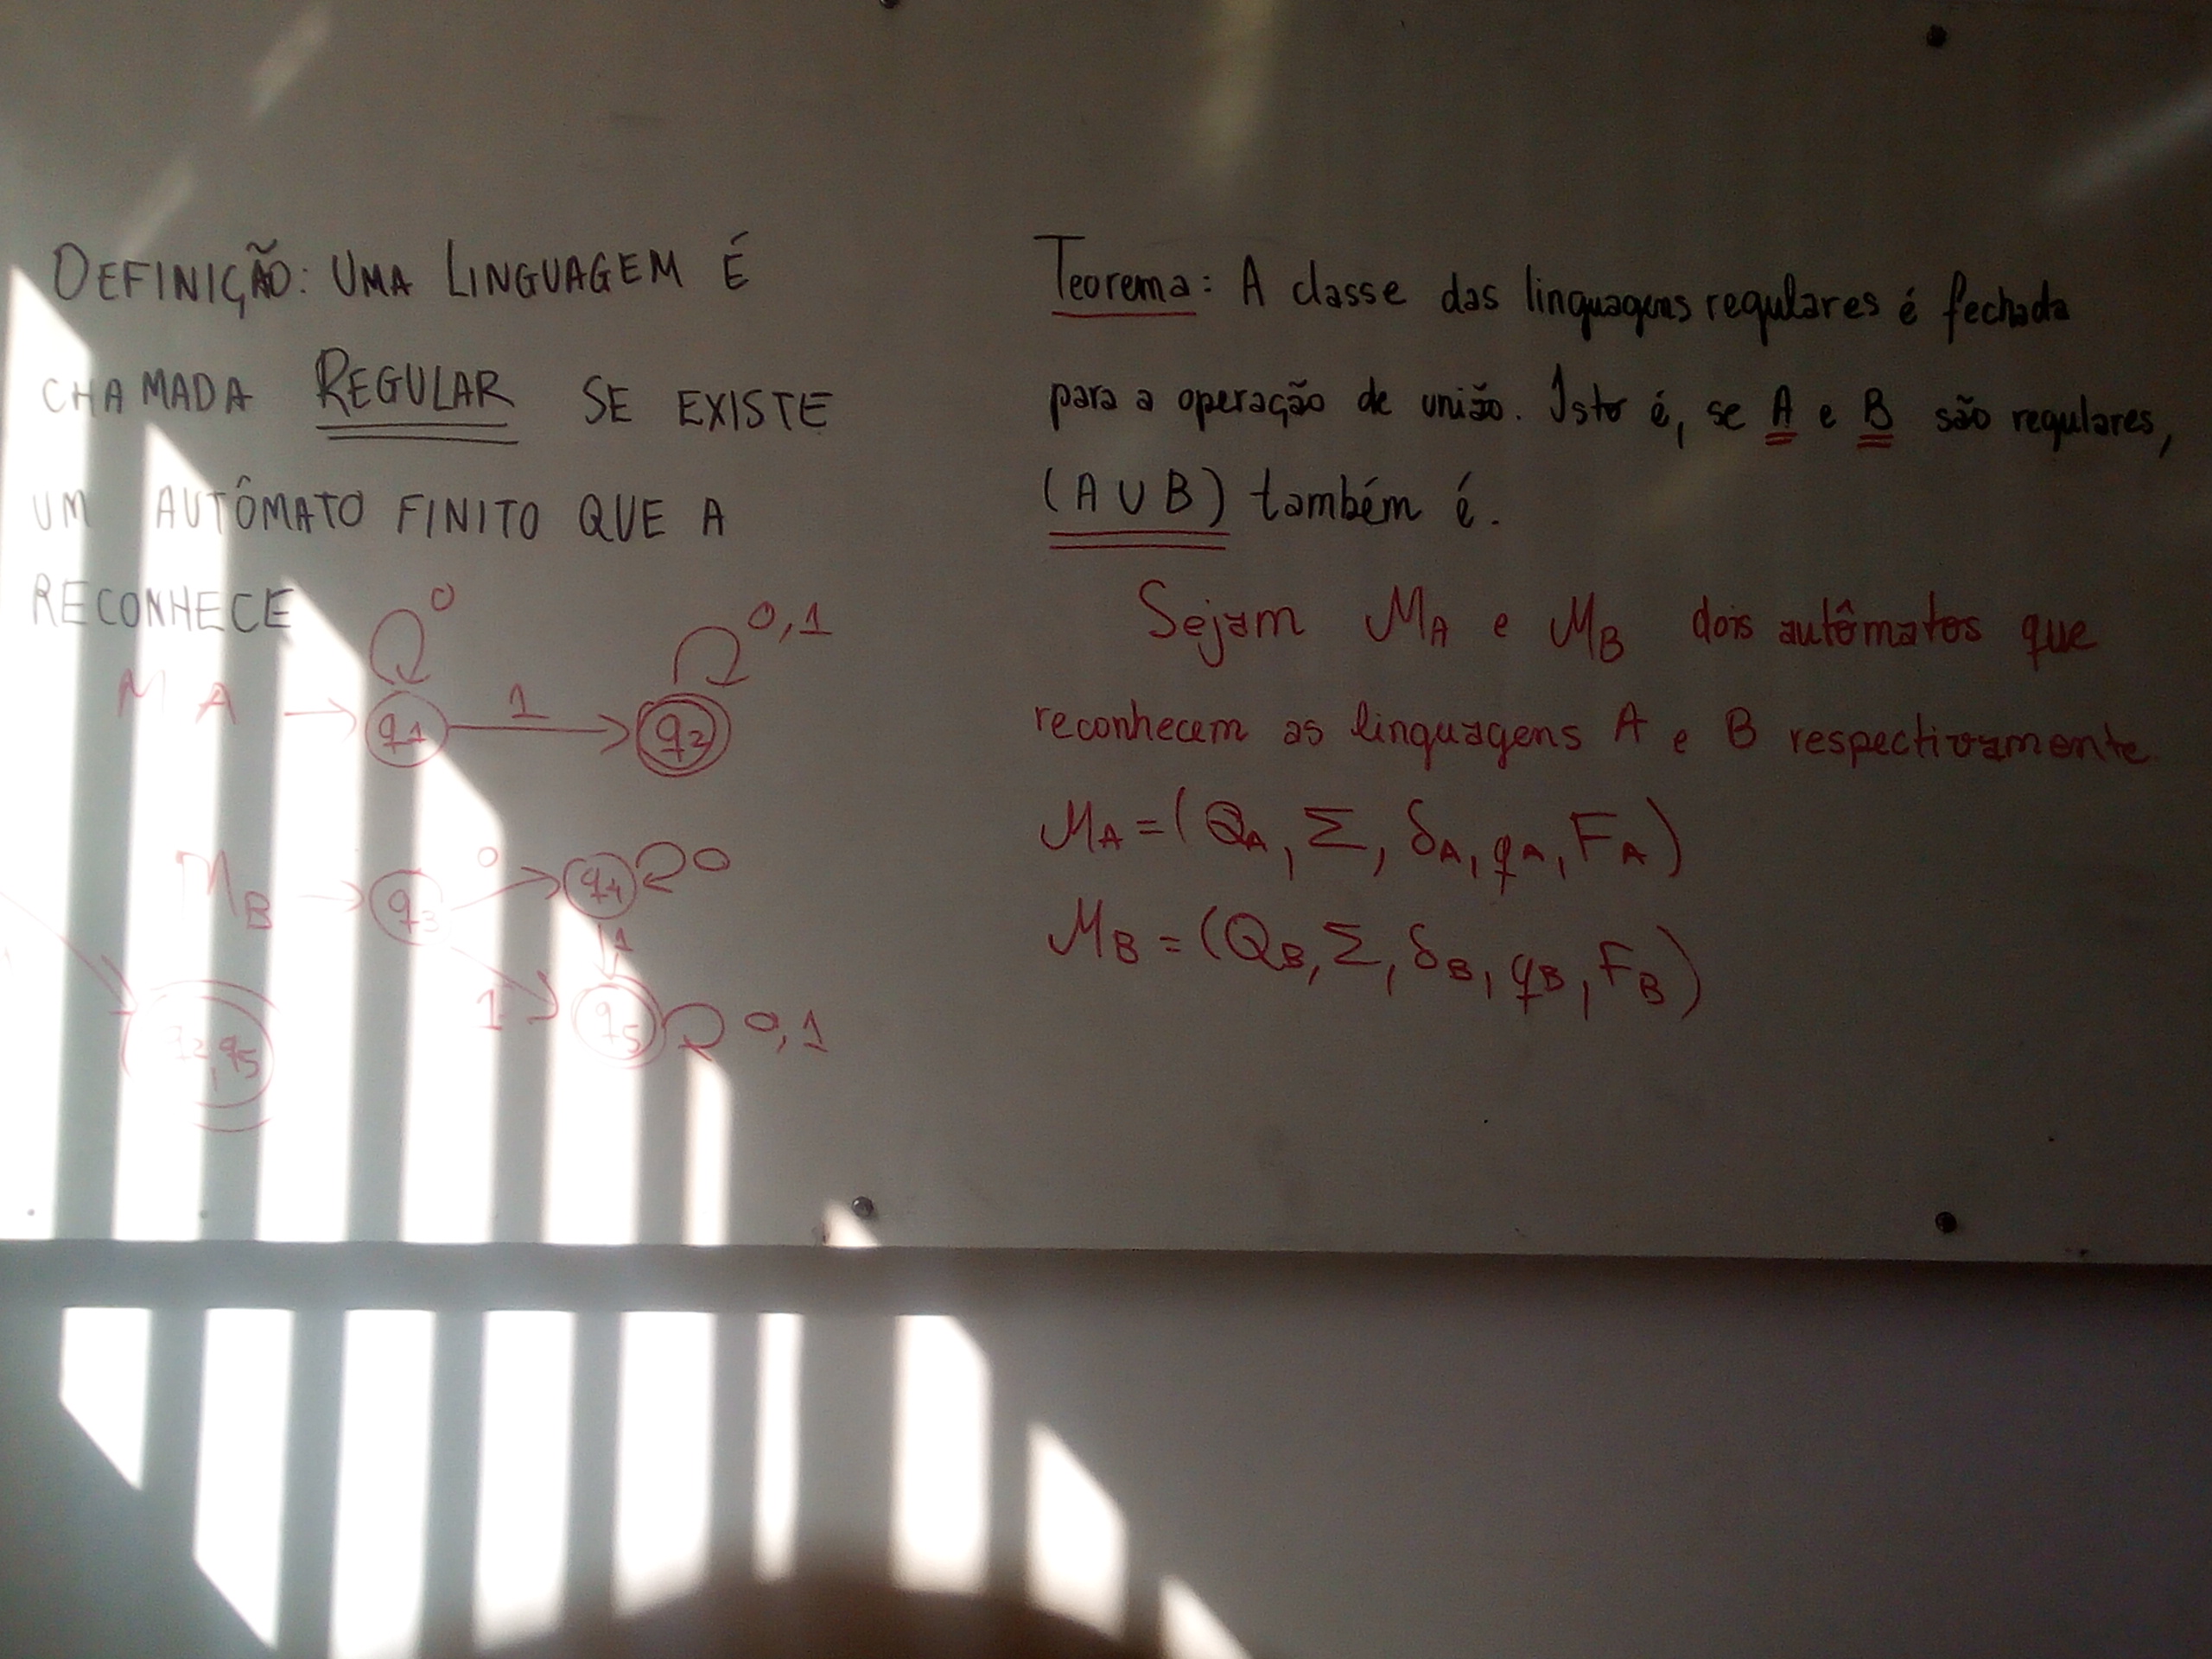 DEFINIÇÃO: UMA LINGUAGEM É
CHAMADA REGULAR SE EXISTE
UM AUTÔMATO FINITO QUE A
RECONHECE
0
0,1
M A
q1
1
q2
MB
q3
0
q4
0
1
1
q5
0,1
q2,q5
Teorema: A classe das linguagens regulares é fechada
para a operação de união. Isto é, se A e B são regulares,
(A ∪ B) também é.
Sejam MA e MB dois autômatos que
reconhecem as linguagens A e B respectivamente
MA = (QA, Σ, δA, qA, FA)
MB = (QB, Σ, δB, qB, FB)